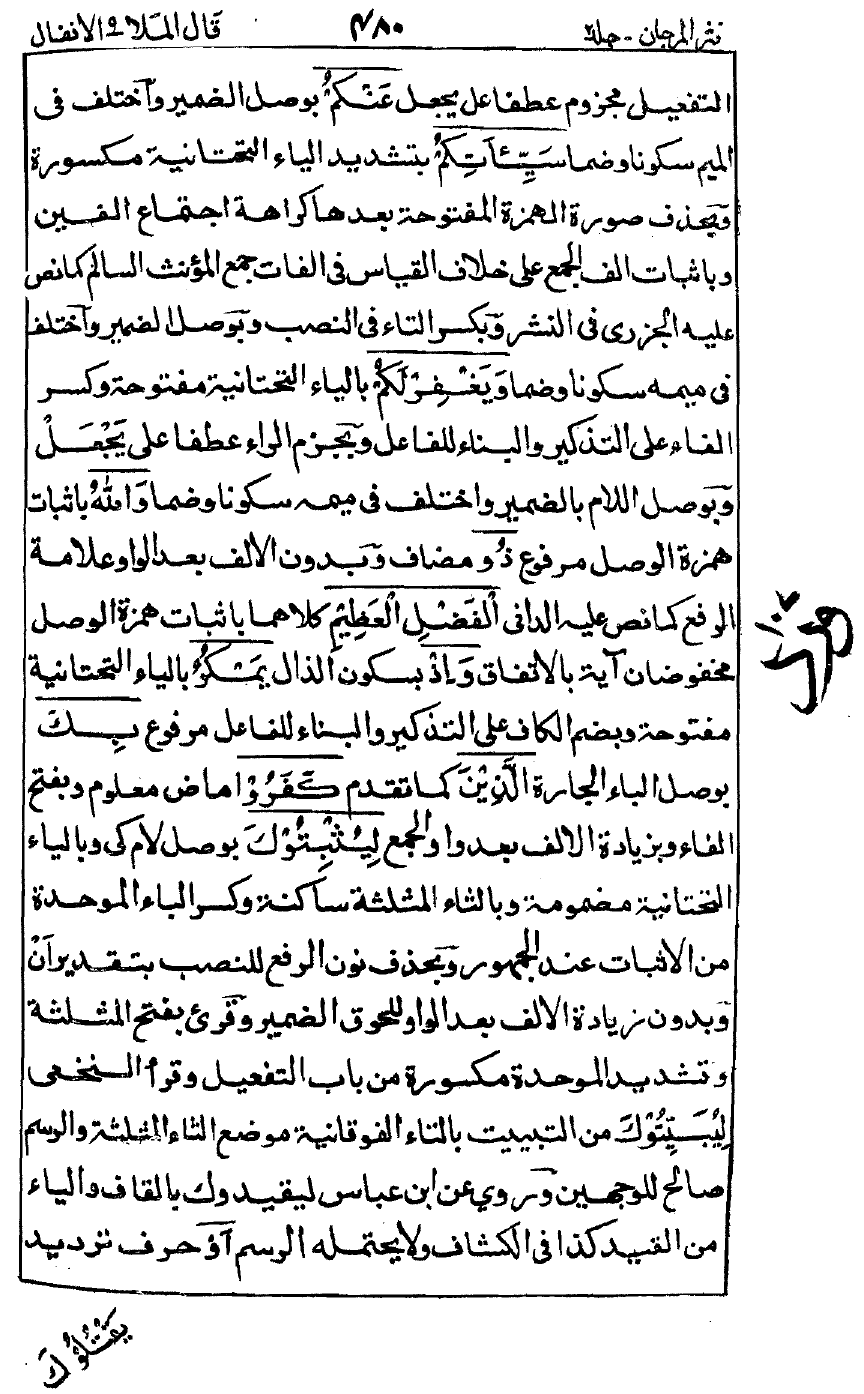 نثر المرجان - جلد ٤٨٠ قال الملأ ٩ الانفال
التفعيل مجزوم عطفا على يجعل عَنْكُمْ بوصل الضمير واختلف فى
الميم سكونا وضما سَيِّئَاتِكُمْ بتشديد الياء التحتانية مكسورة
وبحذف صورة الهمزة المفتوحة بعدها كراهة اجتماع الفين
وباثبات الف الجمع على خلاف القياس فى الفات جمع المؤنث السالم كما نص
عليه الجزرى فى النشر وبكسر التاء فى النصب وبوصل الضمير واختلف
فى ميمه سكونا وضما وَيَغْفِرْ لَكُمْ بالياء التحتانية مفتوحة وكسر
الفاء على التذكير والبناء للفاعل وبجزم الراء عطفا على يَجْعَلْ
وبوصل اللام بالضمير واختلف فى ميمه سكونا وضما وَاللهُ باثبات
همزة الوصل مرفوع ذُو مضاف وبدون الالف بعد الواو علامة
الرفع كما نص عليه الدانى الْفَضْلِ الْعَظِيْمِ كلاهما باثبات همزة الوصل
مخفوضان آية بالاتفاق وَاِذْ بسكون الذال يَمْكُرُ بالياء التحتانية
مفتوحة وبضم الكاف على التذكير والبناء للفاعل مرفوع بِكَ
بوصل الباء الجارة الَّذِيْنَ كما تقدم كَفَرُوْا ماض معلوم وبفتح
الفاء وبزيادة الالف بعد واو الجمع لِيُثْبِتُوْكَ بوصل لام كى وبالياء
التحتانية مضمومة وبالثاء المثلثة ساكنة وكسر الباء الموحدة
من الاثبات عند الجمهور وبحذف نون الرفع للنصب بتقدير اَنْ
وبدون زيادة الالف بعد الواو للحوق الضمير وقرئ بفتح المثلثة
وتشديد الموحدة مكسورة من باب التفعيل وقرأ النخعى
لِيُبَيِّتُوْكَ من التبييت بالتاء الفوقانية موضع الثاء المثلثة والرسم
صالح للوجهين وروي عن ابن عباس ليقيدوك بالقاف والياء
من القيد كذا فى الكشاف ولا يحتمله الرسم اَوْ حرف ترديد
يَقْتُلُوْكَ